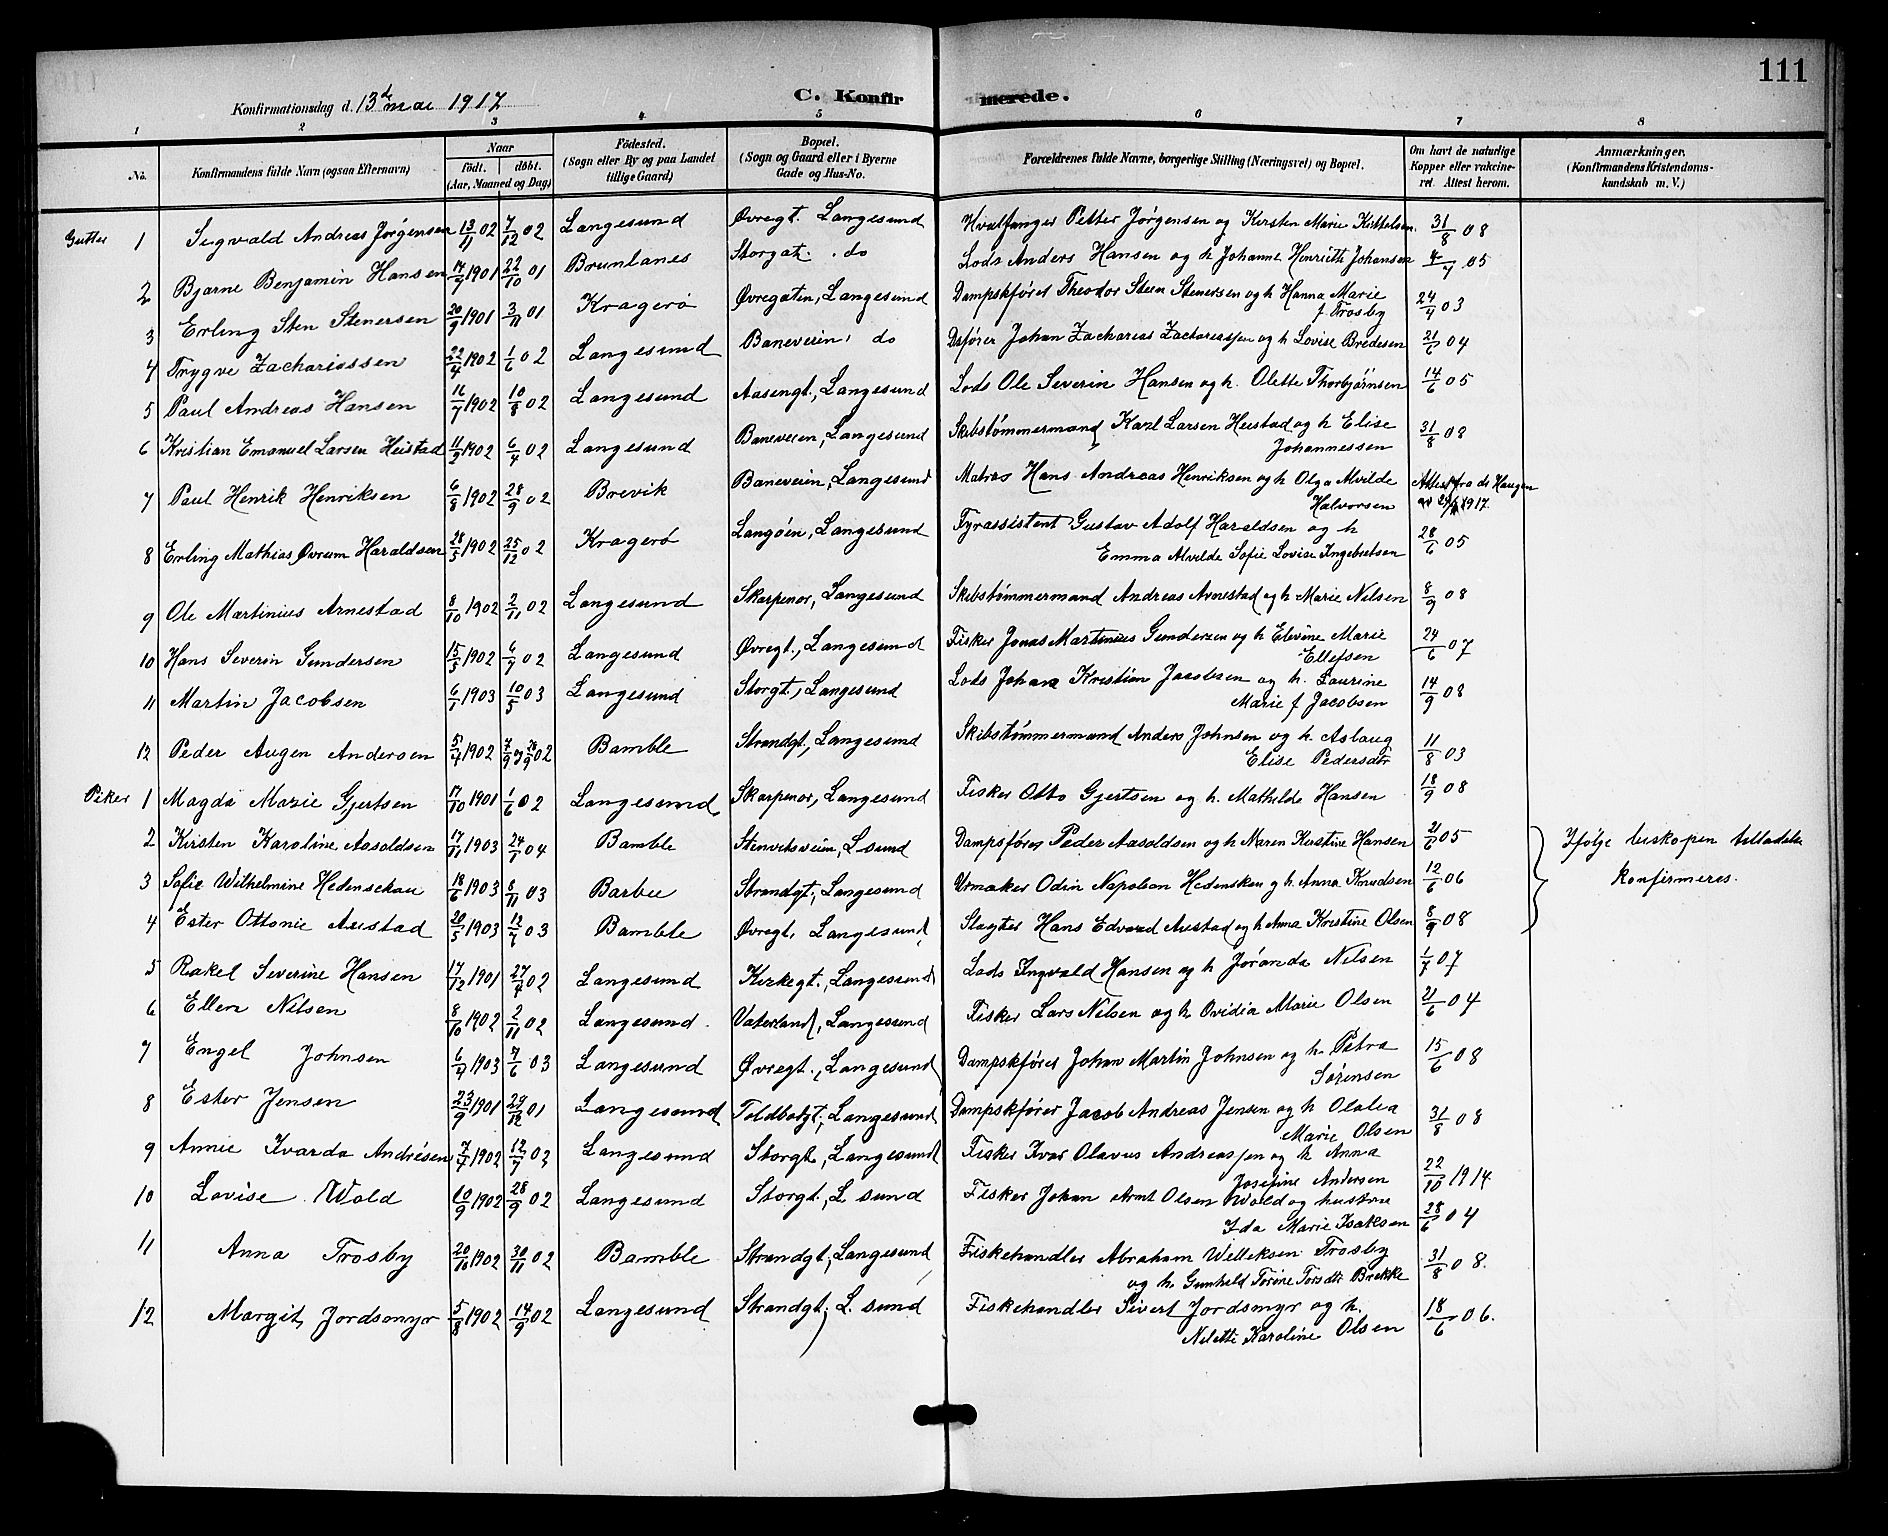 111
Konfirmationsdag d. 13de mai 1917
C. Konfirmerede.
1 2 3 4 5 6 7 8
No. Konfirmandens fulde Navn (ogsaa Efternavn) Naar født. døbt. (Aar, Maaned og Dag) Fødested. (Sogn eller By og paa Landet tillige Gaard) Bopæl. (Sogn og Gaard eller i Byerne Gade og Hus-No. Forældrenes fulde Navne, borgerlige Stilling (Næringsvei) og Bopæl. Om havt de naturlige Kopper eller vakcineret. Attest herom. Anmærkninger, (Konfirmandens Kristendomskundskab m. V.)
Gutter 1 Sigvald Andreas Jørgensen 13/11 02 7/12 02 Langesund Øvregt. Langesund Hvalfanger Petter Jørgensen og Kirsten Marie Kittelsen. 31/8 08
2 Bjarne Benjamin Hansen 14/7 1901 22/10 01 Brunlanes Storgat. do Lods Anders Hansen og h Johanne Henriette Johansen 4/7 05
3 Erling Sten Stenersen 20/9 1901 3/11 01 Kragerø Øvregaten, Langesund Dampskfører Theodor Steen Stenersen og h Hanna Marie f. Trosby 24/4 03
4 Trygve Zachariassen 22/4 1902 1/6 02 Langesund Baneveien, do Dsfører Johan Zacharias Zachariassen og h Lovise Bredesen 21/6 04
5 Paul Andreas Hansen 16/7 1902 10/8 02 Langesund Aasengt., Langesund Lods Ole Severin Hansen og h. Olette Thorbjørnsen 14/6 05
6 Kristian Emanuel Larsen Heistad 11/2 1902 6/4 02 Langesund Baneveien, Langesund Skibstømmermand Karl Larsen Heistad og h Elise Johannessen 31/8 08
7 Paul Henrik Henriksen 6/8 1902 28/9 02 Brevik Baneveien, Langesund Matros Hans Andreas Henriksen og h Olga Alvilde Halvorsen Attest fra dr Haugen av 1917
8 Erling Mathias Øvrum Haraldsen 28/5 1902 25/12 02 Kragerø Langøen, Langesund Fyrassistent Gustav Adolf Haraldsen og h Emma Alvilde Sofie Lovise Ingebretsen 28/6 05
9 Ole Martinius Arnestad 8/10 1902 2/11 02 Langesund Skarpenor, Langesund Skibstømmermand Andreas Arnestad og h Marie Nilsen 8/9 08
10 Hans Severin Gundersen 15/5 1902 6/7 02 Langesund Øvregt., Langesund Fisker Jonas Martinius Gundersen og h Elevine Marie Ellefsen 24/6 07
11 Martin Jacobsen 6/1 1903 10/5 03 Langesund Storgt., Langesund Lods Johan Kristian Jacobsen og h. Laurine Marie f Jacobsen 14/9 08
12 Peder Augen Andersen 5/7 1902 7/9 02 Bamble Strandgt, Langesund Skibstømmermand Anders Johnsen og h. Aslaug Elise Pedersdtr 11/8 03
Piker 1 Magda Marie Gjertsen 17/10 1901 1/6 02 Langesund Skarpenor, Langesund Fisker Otto Gjertsen og h. Mathilde Hansen 18/9 08
2 Kirsten Karoline Aasoldsen 17/11 1903 24/1 04 Bamble Stenviksveien, L. sund Dampsfører Peder Aasoldsen og h Maren Kirstine Hansen 21/6 05 Ifølge biskopen tilladelse
3 Sofie Wilhelmine Hedenschau 18/6 1903 8/11 03 Barbu Strandgt., Langesund Urmaker Odin Napoleon Hedenskau g h. Anna Knudsen 12/6 06 konfirmeres.
4 Ester Ottonie Aaestad 20/5 1903 12/7 03 Bamble Øvregt, Langesund Slagter Hans Edvard Aaestad og h Anna Kristine Olsen 8/9 08
5 Rakel Severine Hansen 17/12 1901 27/4 02 Langesund Kirkegt., Langesund Lods Ingvald Hansen og h Jøranda Nilsen 1/7 07
6 Ellen Nilsen 8/10 1902 2/11 02 Langesund. Vaterland, Langesund Fisker Lars Nilsen og h Ovidia Marie Olsen 21/6 04
7 Engel Johnsen 6/4 1903 7/6 03 Langesund Øvregt., Langesund Dampskfører Johan Martin Johnsen og h. Petra Sørensen 15/6 08
8 Ester Jensen 23/9 1901 29/12 01 Langesund Toldbodgt., Langesund Dampskfører Jacob Andreas Jensen og h Olalea Marie Olsen 31/8 08
9 Annie Ivarda Andrésen 7/4 1902 12/7 02 Langesund Storgt, Langesund Fisker Ivar Olavus Andreassen og h Anna Josefine Andersen 22/10 1914
10 Lovise Wold 10/9 1902 28/9 02 Langesund Storgt., L. sund Fisker Johan Arnt Olsen Wold og hustru Ida Marie Isaksen 28/6 04
11 Anna Trosby 20/10 1902 30/11 02 Bamble Strandgt., Langesund Fiskehandler Abraham Welleksen Trosby og h. Gunhild Torine Torsdtr Brekke 31/8 08.
12 Margit Jordsmyr 5/8 1902 14/9 02 Langesund Strandgt. L. sund Fiskehandler Sivert Jordsmyr og h. Nilette Karoline Olsen 18/6 06.